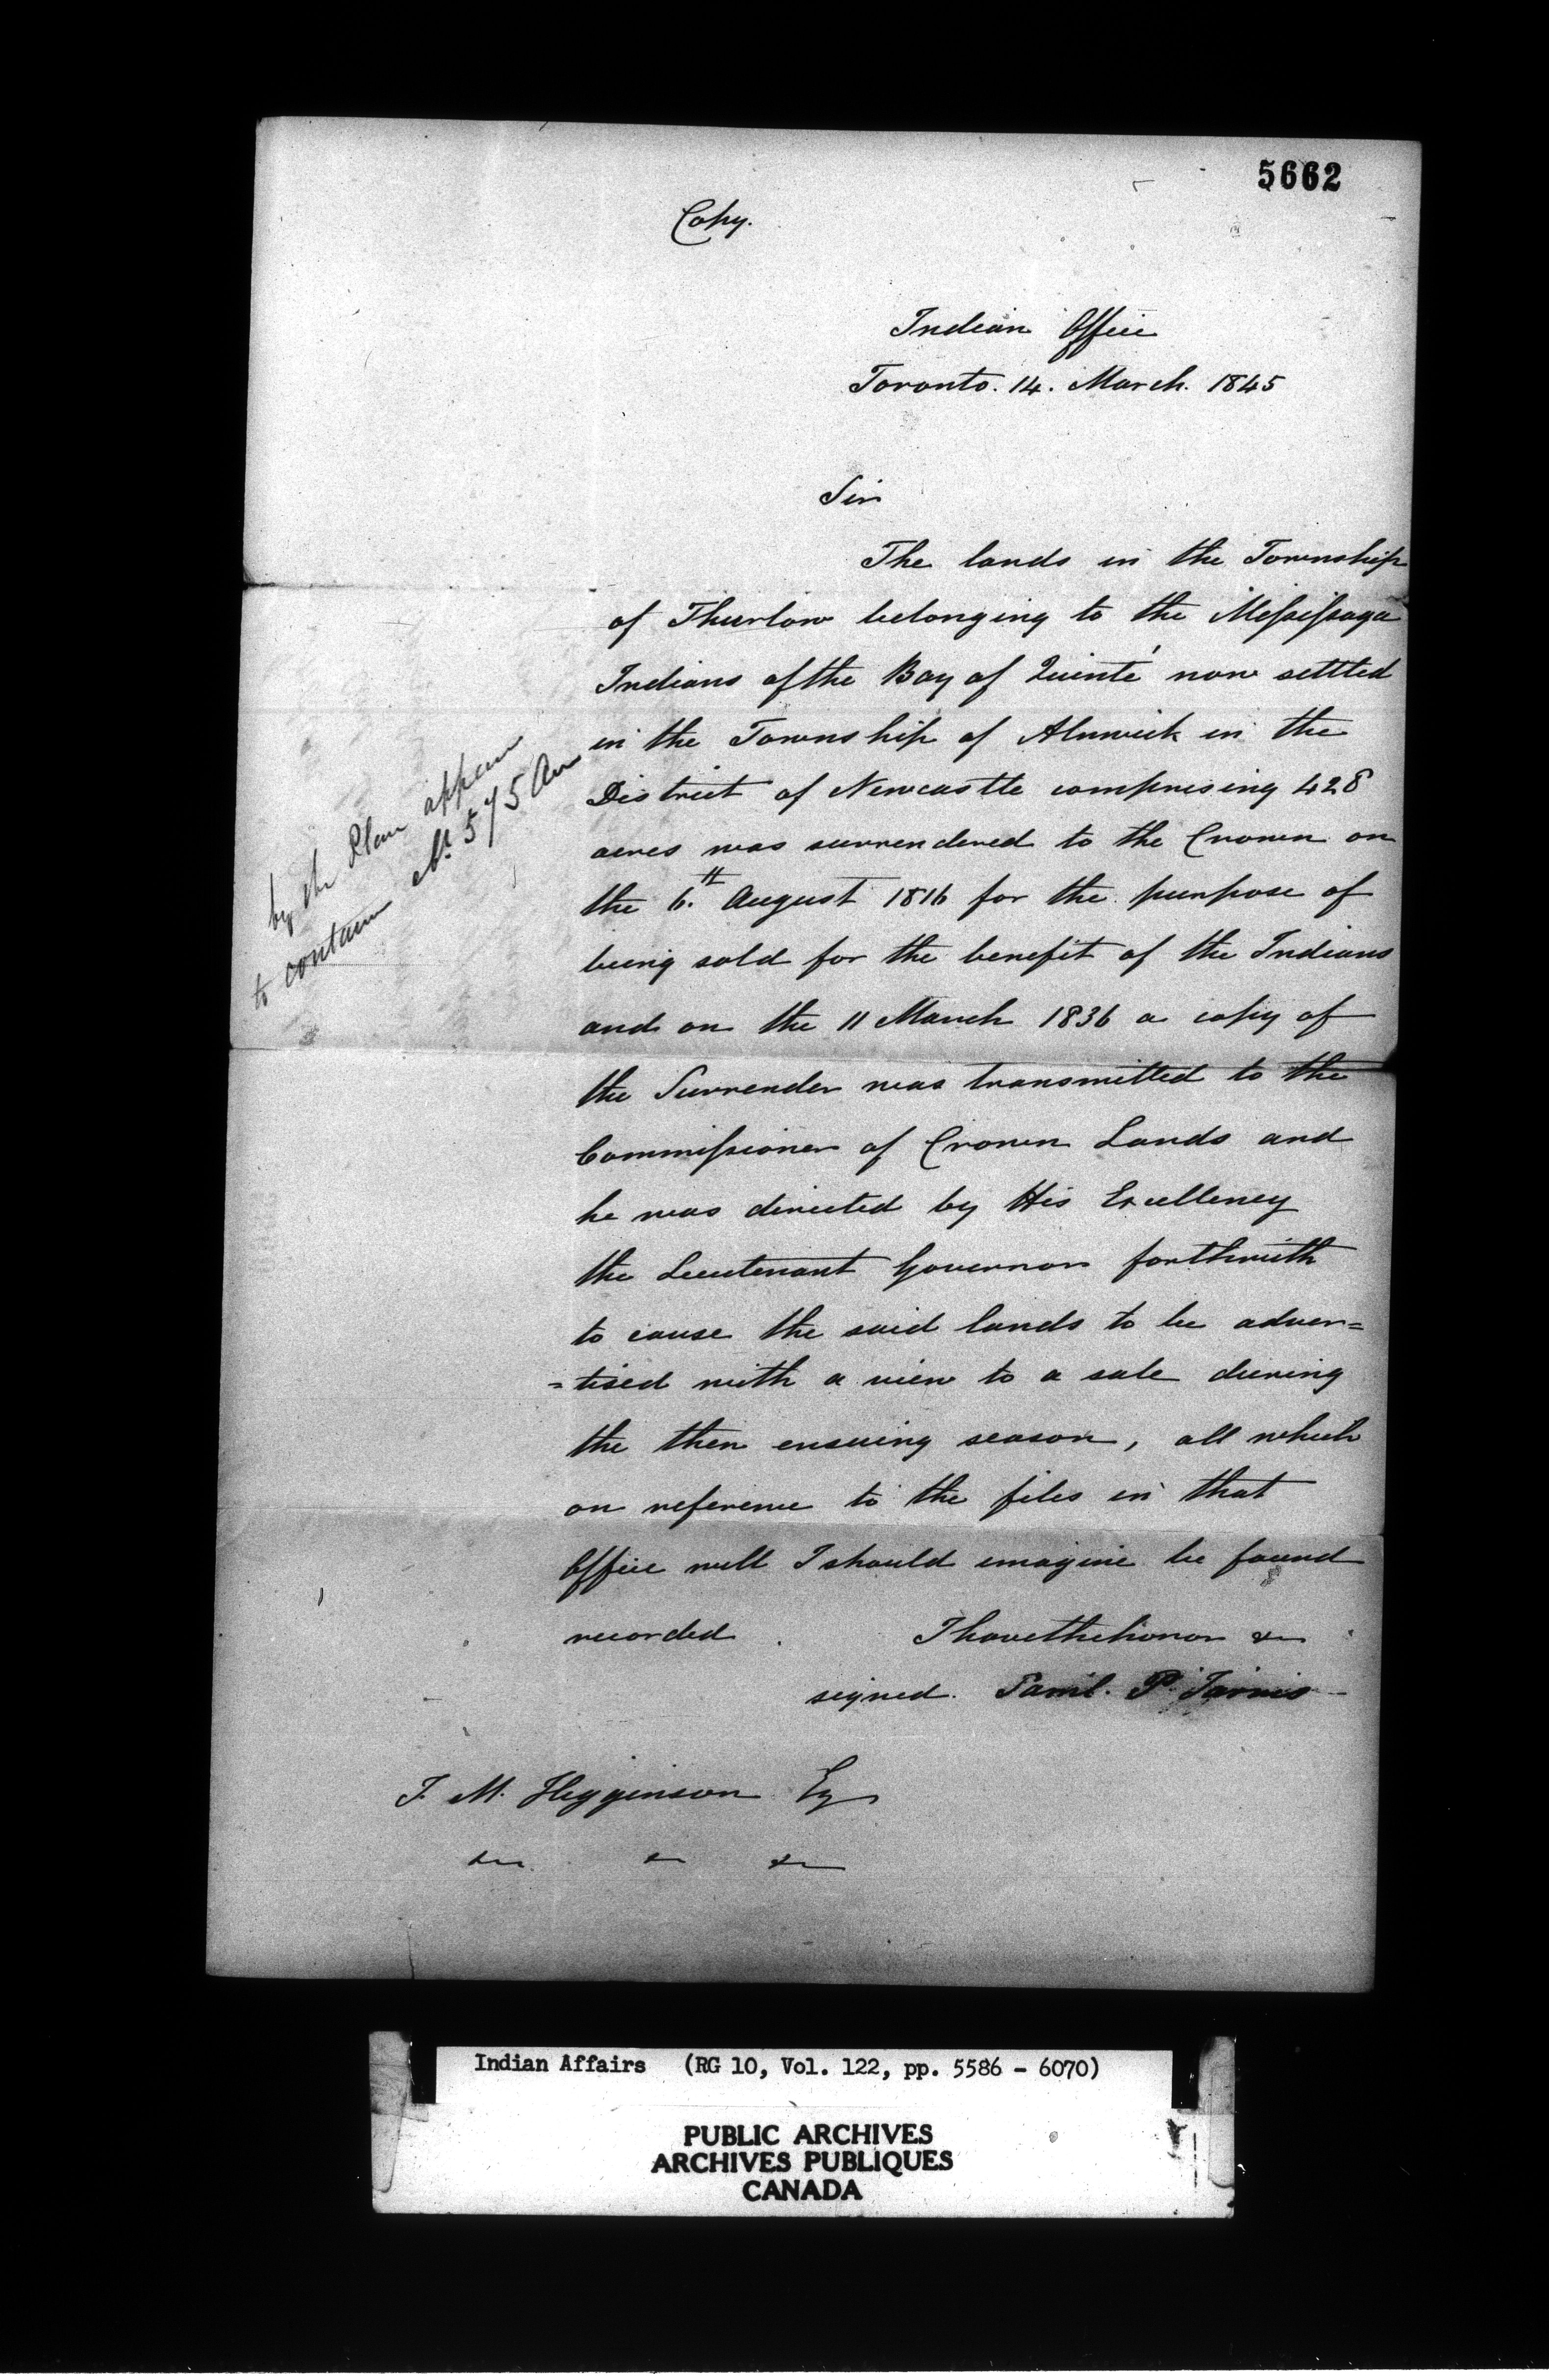 5662
Copy.
Indian Office
Toronto. 14. March. 1845
Sir
The lands in the Township
of Thurlow belonging to the Messissaga
Indians of the Bay of Quinté now settled
in the Township of Alnwick in the
District of Newcastle comprising 428
acres was surrendered to the Crown on
the 6th. August 1816 for the purpose of
being sold for the benefit of the Indians
and on the 11 March 1836 a copy of
the Surrender was transmitted to the
Commissioner of Crown Lands and
he was directed by His Excellency
the Lieutenant Governor forthwith
to cause the said lands to be adver=
=tised with a view to a sale during
the then ensuing season, all which
on reference to the files in that
Office will I should imagine be found
recorded. I have the honor &c
signed. Saml. P. Jarvis
by the Plan appear
to contain Abt 575 Acr
J. M. Higginson Esq
&c &c &c
Indian Affairs (RG 10, Vol. 122, pp. 5586 - 6070)
PUBLIC ARCHIVES
ARCHIVES PUBLIQUES
CANADA